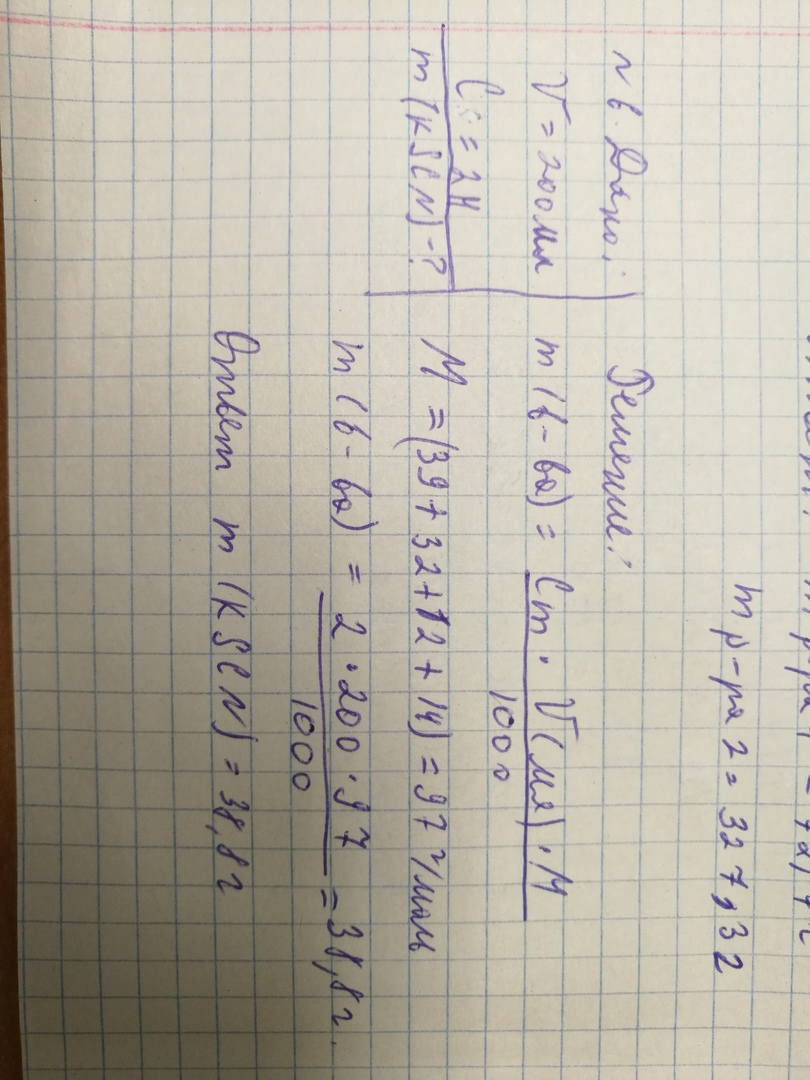 m р-ра 2 = 327,3 г
№ 6. Дано:
V = 200 мл
C = 2 Н
m (KSCN) - ?
Решение:
m (в-ва) = Cm · V(мл) · M / 1000
M = (39 + 32 + 12 + 14) = 97 г/моль
m (в-ва) = 2 · 200 · 97 / 1000 = 38,8 г.
Ответ m (KSCN) = 38,8 г